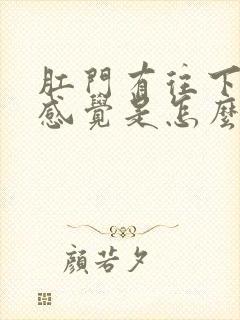 肛門有往下
感覺是怎麼
顏若夕